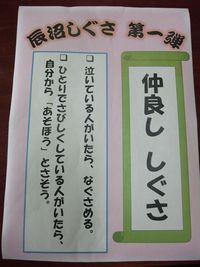 辰沼しぐさ 第一弾
仲良し しぐさ
❑ 泣いている人がいたら、なぐさめる。
❑ ひとりでさびしくしている人がいたら、
自分から「あそぼう」とさそう。